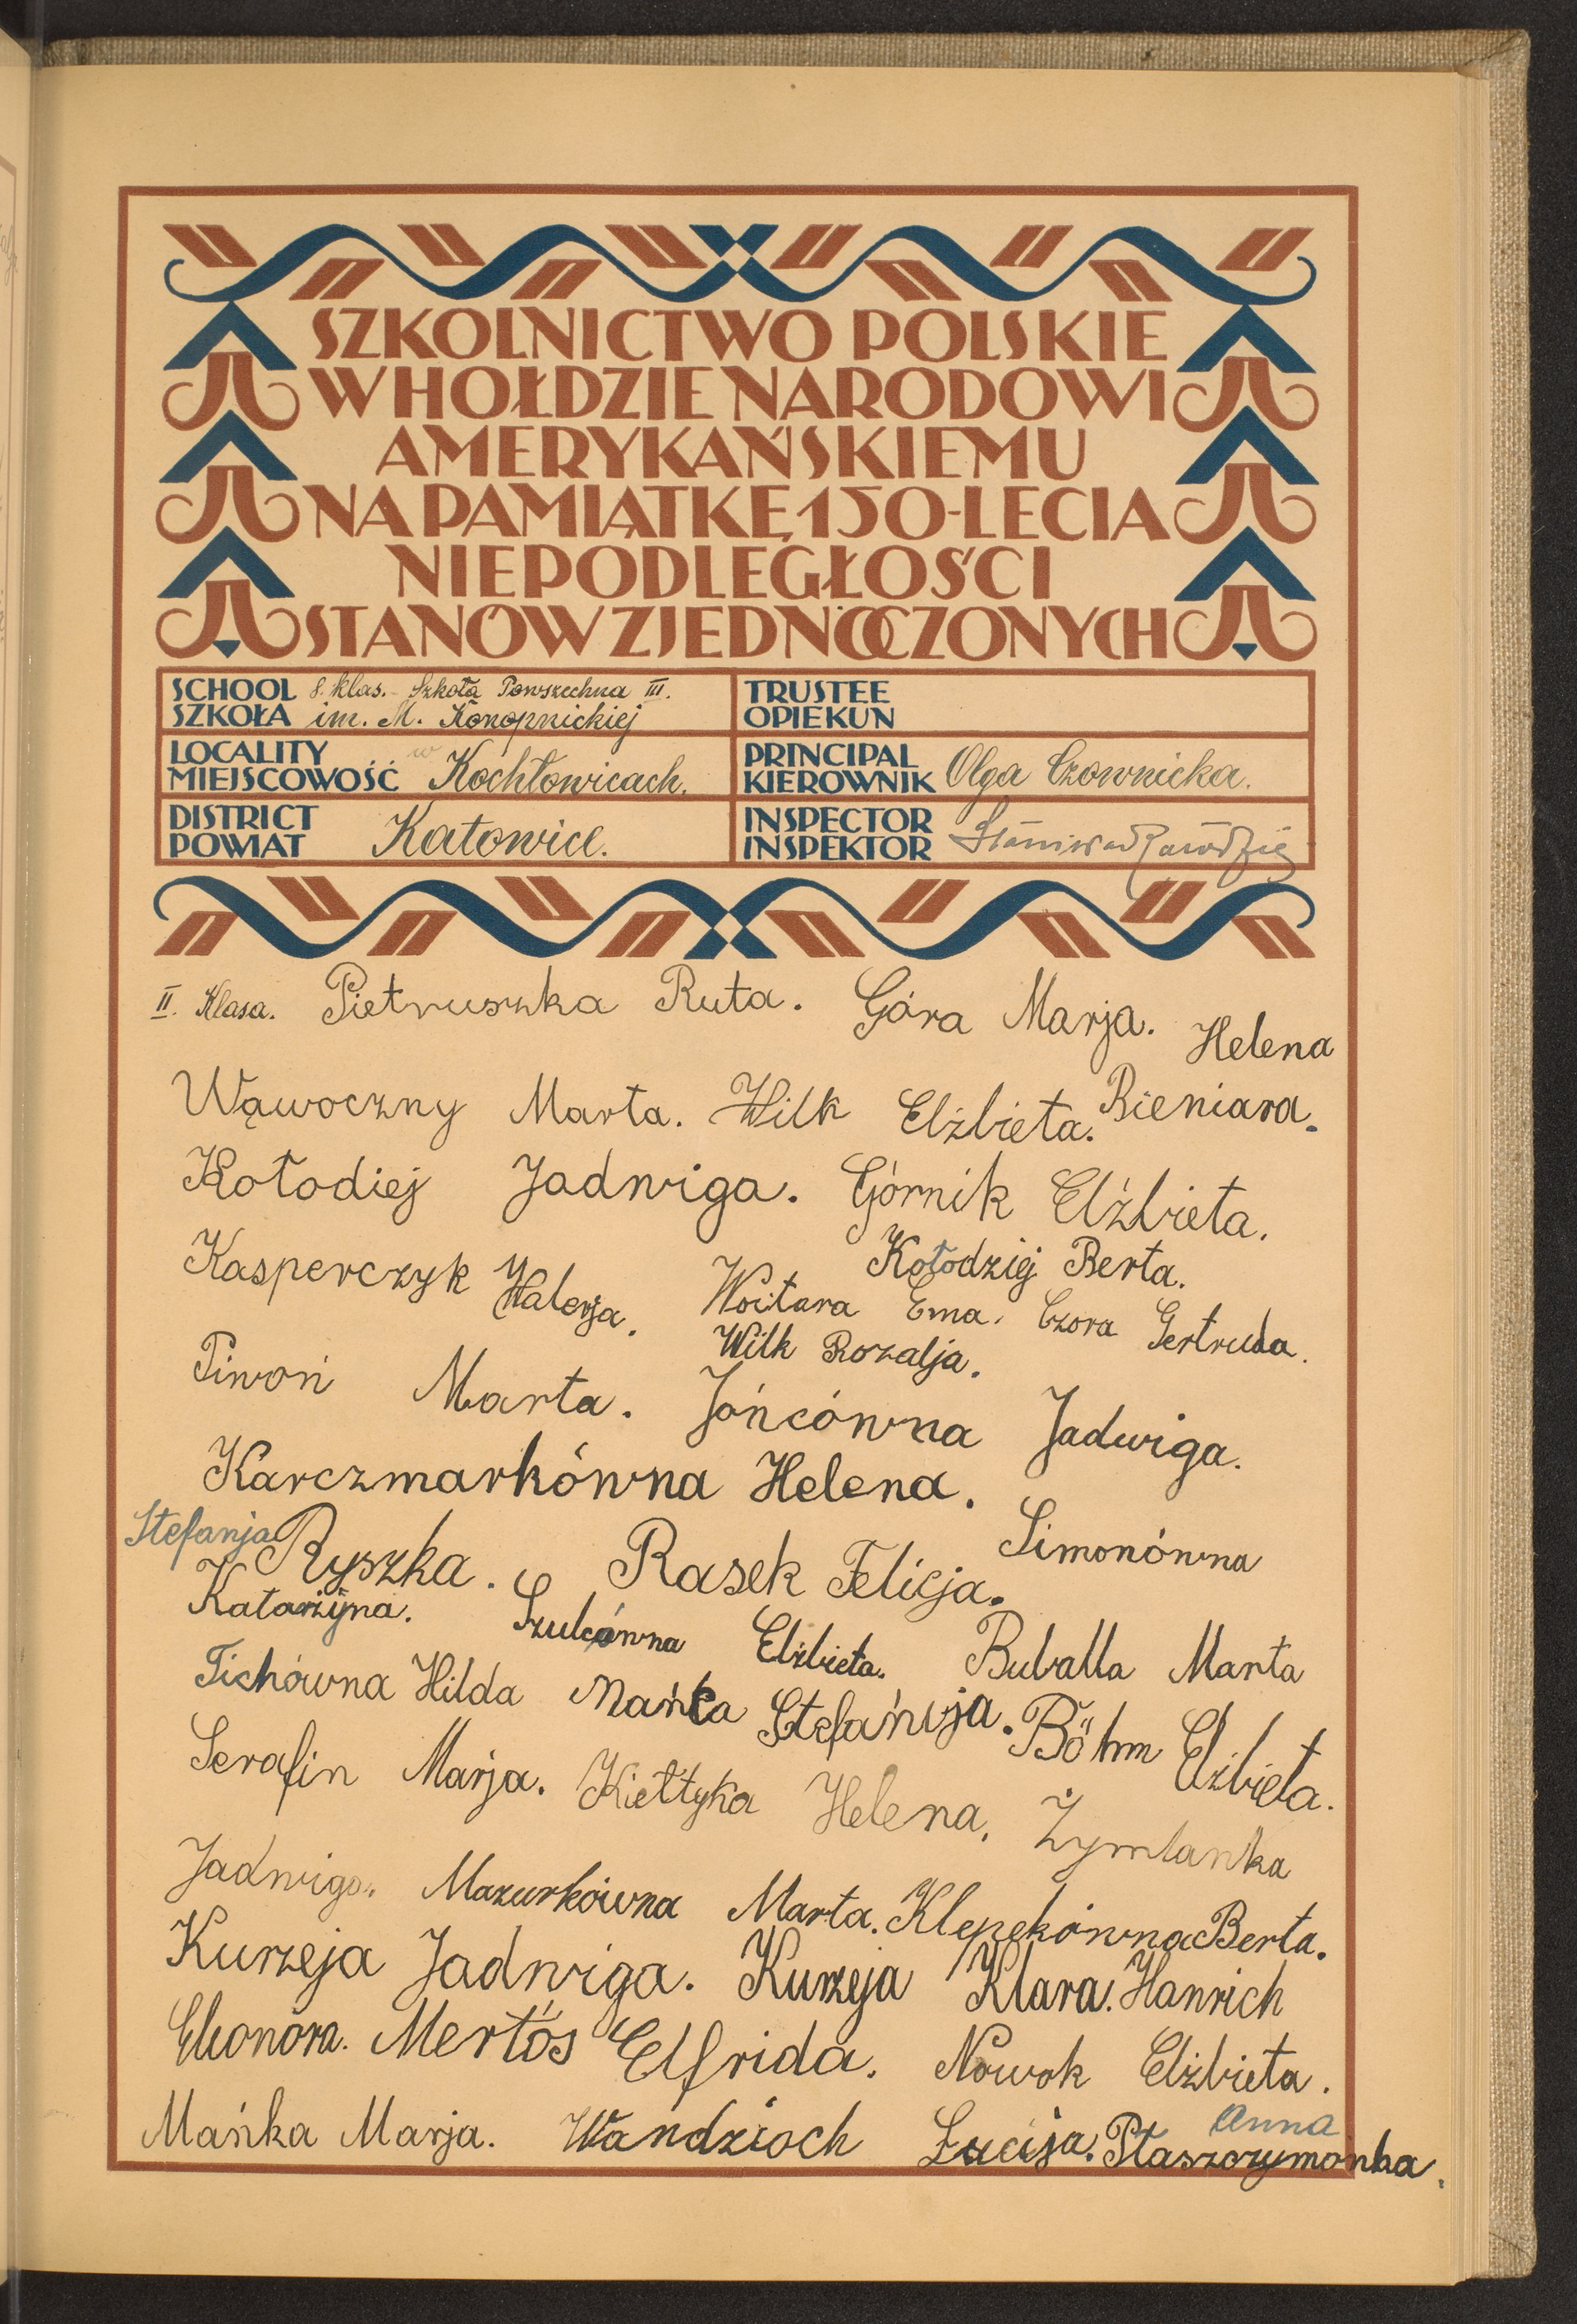 SZKOLNICTWO POLSKIE
W HOŁDZIE NARODOWI
AMERYKAŃSKIEMU
NA PAMIĄTKĘ 150-LECIA
NIEPODLEGŁOŚCI
STANÓW ZJEDNOCZONYCH
SCHOOL 8. klas. Szkoła Powszechna III.
SZKOŁA im. M. Konopnickiej
TRUSTEE
OPIEKUN
LOCALITY
MIEJSCOWOŚĆ w Kochłowicach.
PRINCIPAL
KIEROWNIK Olga Czownicka.
DISTRICT
POWIAT Katowice.
INSPECTOR
INSPEKTOR
II. Klasa. Pietruszka Ruta. Góra Marja. Helena
Wąwoczny Marta. Wilk Elżbieta. Bieniara.
Kołodiej Jadwiga. Górnik Elżbieta.
Kołodziej Berta.
Kasperczyk Walerja. Woitara Ema. Czora Gertruda.
Wilk Rozalja.
Piwoń Marta. Jońcówna Jadwiga.
Karczmarkówna Helena.
Stefanja Ryszka. Rasek Felicja. Simonówna
Katarzyna. Szulcówna Elżbieta. Buballa Marta
Tichówna Hilda Mańka Stefańija. Böhm Elżbieta.
Serafin Marja. Kiełtyka Helena. Żymlanka
Jadwiga. Mazurkówna Marta. Klepekówna Berta.
Kurzeja Jadwiga. Kurzeja Klara. Hanrich
Eleonora. Mertós Elfrida. Nowok Elżbieta.
Mańka Marja. Wandzioch Łucija. Anna
Ptaszczymonka.